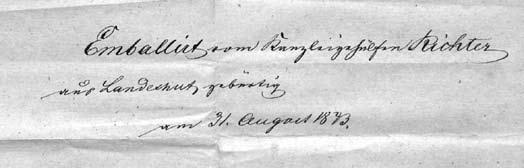 Emballirt vom Kanzleigehülfen Richter
aus Landeshut gebürtig
am 31. August 1873.